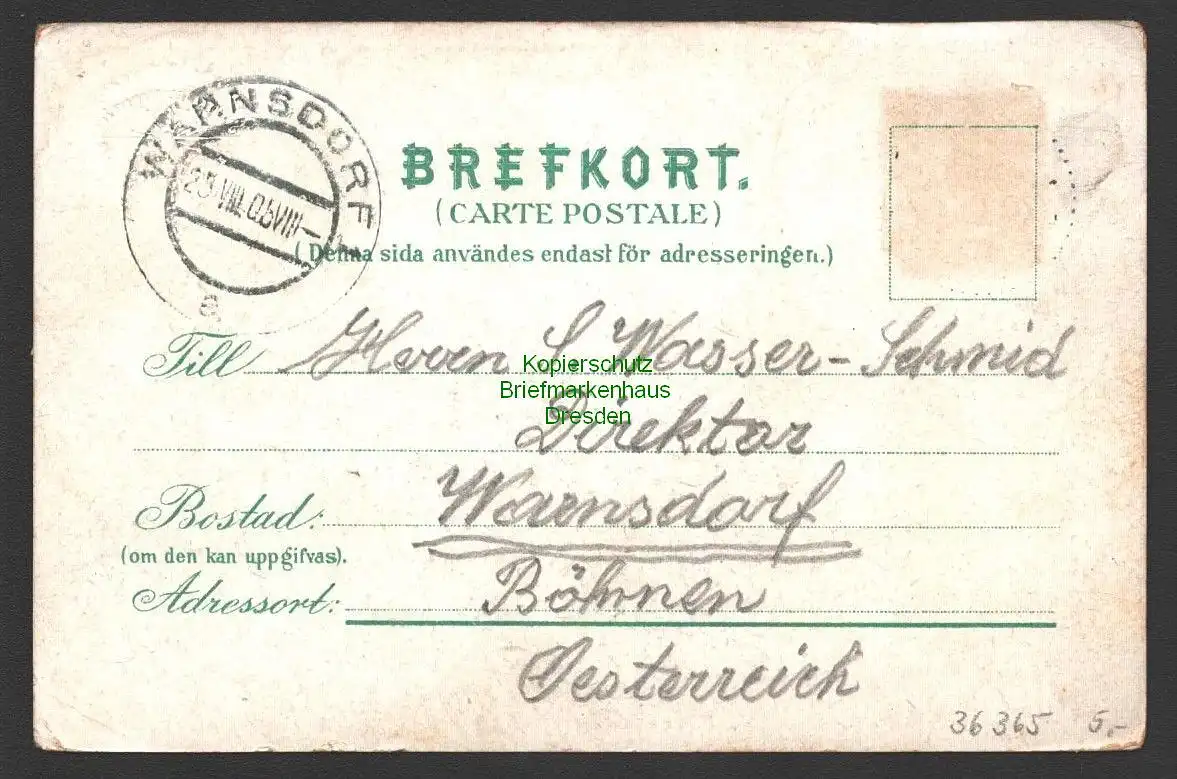 WARNSDORF
23.VIII.05.VIII-
a
BREFKORT.
(CARTE POSTALE)
(Denna sida användes endast för adresseringen.)
Till Herrn L Wasser-Schmid
Kopierschutz
Briefmarkenhaus
Dresden
Direktor
Bostad: Warnsdorf
(om den kan uppgifvas).
Adressort: Böhmen
Oesterreich
36365 5.-